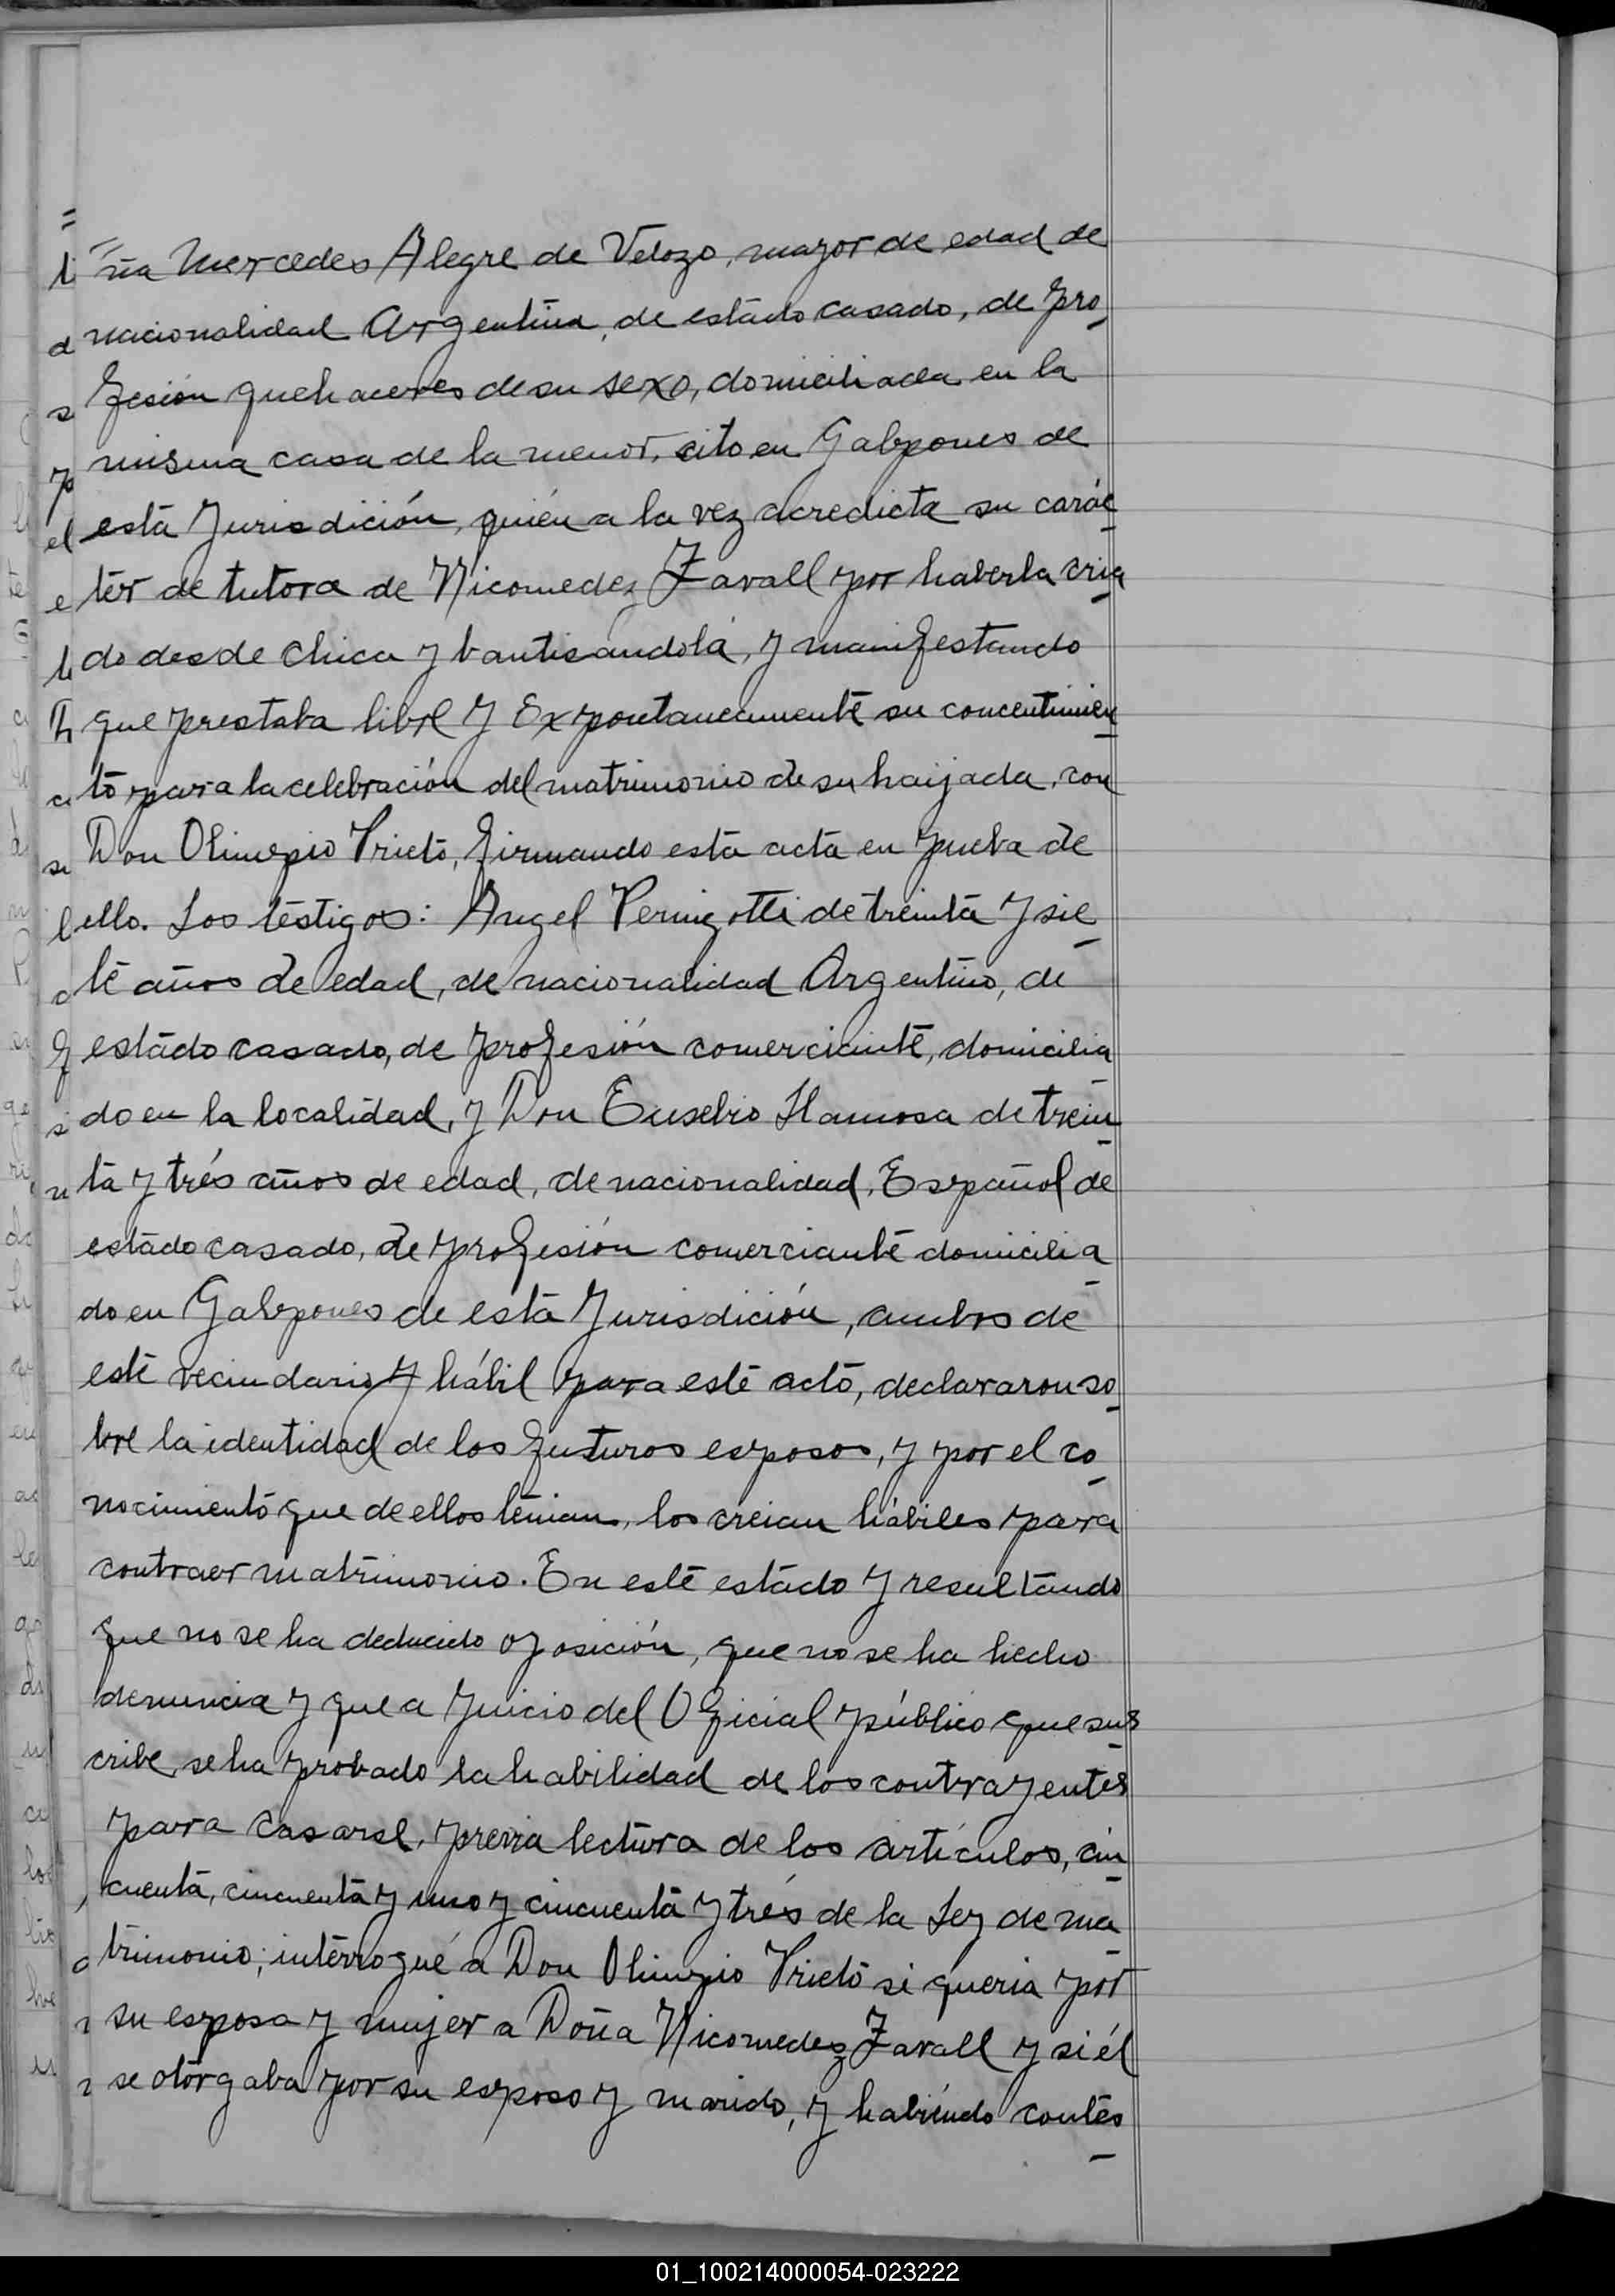 =ña Mercedes Alegre de Velozo, mayor de edad de
nacionalidad Argentina, de estado casado, de pro
fesión quehaceres de su sexo, domiciliada en la
misma casa de la menor, cito en Galpones de
está Jurisdición, quién a la vez acredicta su carác
ter de tutora de Nicomedez Zavall por haberla cria
do desde chica y bautisandolá, y manifestando
que prestaba libre y Expontaneamente su concentimien
to para la celebración del matrimonio de su haijada, con
Don Olimpio Prieto, firmando esta acta en pueba de
ello. Los testigos: Angel Pernigotti de treinta y sie
te años de edad, de nacionalidad Argentino, de
estado casado, de profesión comerciante, domicilia
do en la localidad, y Don Eusebio Llamosa de trein
ta y trés años de edad, de nacionalidad, Español de
estado casado, de profesión comerciante domicilia
do en Galpones de esta Jurisdición, ambos de
este vecindario y hábil para este acto, declararon so
bre la identidad de los futuros esposos, y por el co
nocimiento que de ellos tenian, los creian hábiles para
contraer matrimonio. En este estado y resultando
que no se ha deducido oposición, que no se ha hecho
denuncia y que a juicio del Oficial público que sus
cribe, se ha probado la habilidad de los contrayentes
para casarse, previa lectura de los artículos, cin
cuenta, cincuenta y uno y cincuenta y trés de la Ley de ma
trimonio; interrogué a Don Olimpio Prieto si queria por
su esposa y mujer a Doña Nicomedez Zavall y si él
se otorgaba por su esposo y marido, y habiéndo contes
01_100214000054-023222